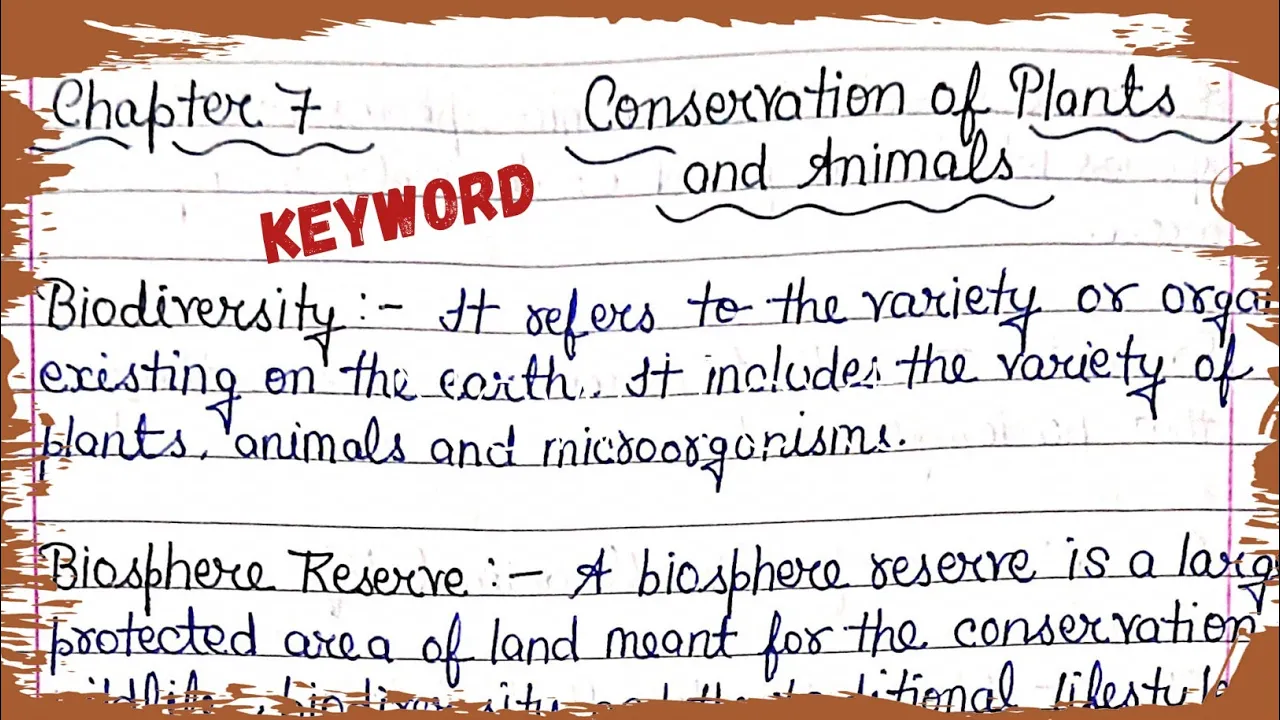 Chapter 7 Conservation of Plants
and Animals
KEYWORD
Biodiversity :- It refers to the variety or orga
existing on the earth. It includes the variety of
plants, animals and microorganisms.
Biosphere Reserve :- A biosphere reserve is a larg
protected area of land meant for the conservation
lifestyle